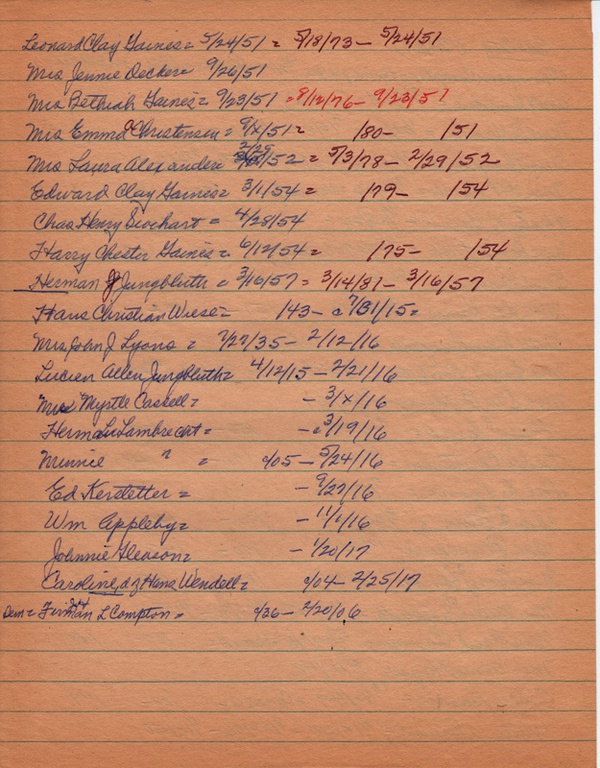 Leonard Clay Gaines = 5/24/51 = 5/18/73 — 5/24/51
Mrs Jennie Decker = 9/26/51
Mrs Bethiah Gaines = 9/23/51 = 8/12/76 — 9/23/51
Mrs Emma C Christensen = 9/x/51 = /80 — /51
Mrs Laura Alexander = 2/29/52 = 5/3/78 — 2/29/52
Edward Clay Gaines = 3/1/54 = /79 — /54
Chas Henry = 4/28/54
Harry Chester Gaines = 6/12/54 = /75 — /54
Herman J Jungbluth = 3/16/57 = 3/14/81 — 3/16/57
Hans Christian Wiese = /43 — c 7/31/15 =
Mrs John J Lyons = 7/27/35 — 2/12/16
Lucien Allen Jungbluth = 4/12/15 — 2/21/16
Mrs Myrtle Caskell = — 3/x/16
Herman Lambrecht = — c 3/19/16
Minnie " = c/05 — 5/24/16
Ed Kerstetter = — 9/27/16
Wm Appleby = — 11/1/16
Johnnie Gleason = — 1/20/17
Caroline, d of Hans Wendell = c/04 — 2/25/17
Dem = L Compton = c/36 — 2/20/06